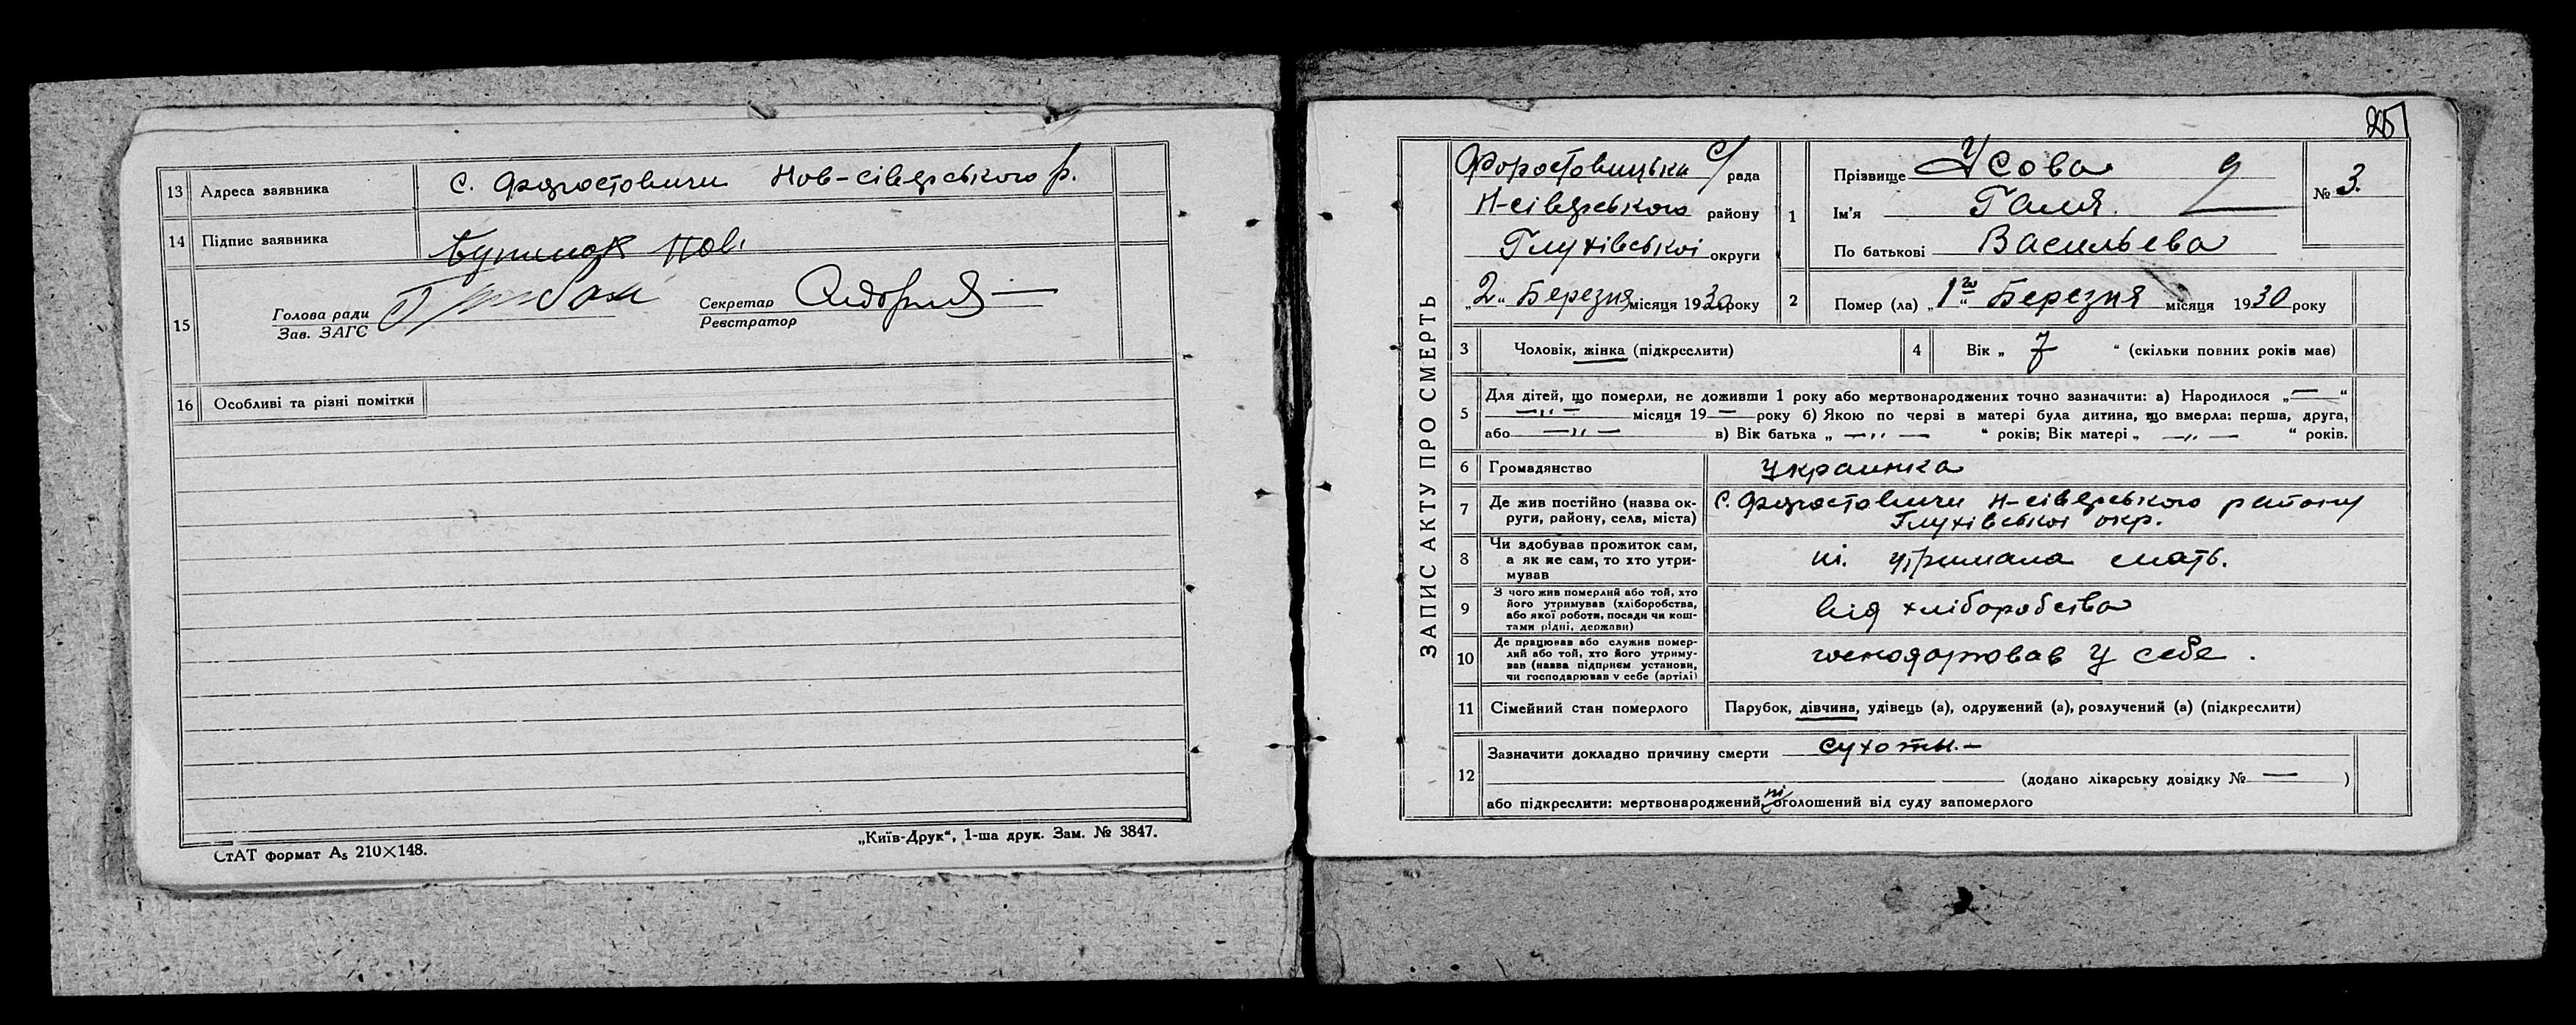 13 Адреса заявника с. Форостовичи Нов-сіверського р.
14 Підпис заявника
15 Голова ради
Зав. ЗАГС
Секретар
Реєстратор
16 Особливі та різні помітки
СтАТ формат А₅ 210×148.
„Київ-Друк“, 1-ша друк. Зам. № 3847.
ЗАПИС АКТУ ПРО СМЕРТЬ
Форостовицька с/рада
Н-сіверського району
Глухівської округи
„2“ Березня місяця 1930 року
1 Прізвище Усова
Ім’я Галя.
По батькові Васильева
№ 3.
2 Помер (ла) „1го“ Березня місяця 1930 року
3 Чоловік, жінка (підкреслити)
4 Вік „ 7 “ (скільки повних років має)
5 Для дітей, що померли, не доживши 1 року або мертвонароджених точно зазначити: а) Народилося „—“
—„— місяця 19 — року б) Якою по черзі в матері була дитина, що вмерла: перша, друга,
або —„— в) Вік батька „ —„— “ років; Вік матері „ —„— “ років.
6 Громадянство украинка
7 Де жив постійно (назва ок-
руги, району, села, міста)
с. Форостовичи Н-сіверського району
Глухівської окр.
8 Чи здобував прожиток сам,
а як не сам, то хто утри-
мував
ні. утримала мать.
9 З чого жив померлий або той, хто
його утримував (хліборобства,
або якої роботи, посади чи кош-
тами рідні, держави)
від хліборобства
10 Де працював або служив помер-
лий або той, хто його утриму-
вав (назва підприєм установи,
чи господарював у себе (артілі)
господарював у себе.
11 Сімейний стан померлого Парубок, дівчина, удівець (а), одружений (а), розлучений (а) (підкреслити)
12 Зазначити докладно причину смерти сухоты.—
(додано лікарську довідку № — )
або підкреслити: мертвонароджений, ні оголошений від суду запомерлого